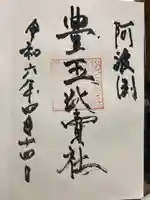 阿波国
豊玉比賣社
令和六年四月十四日